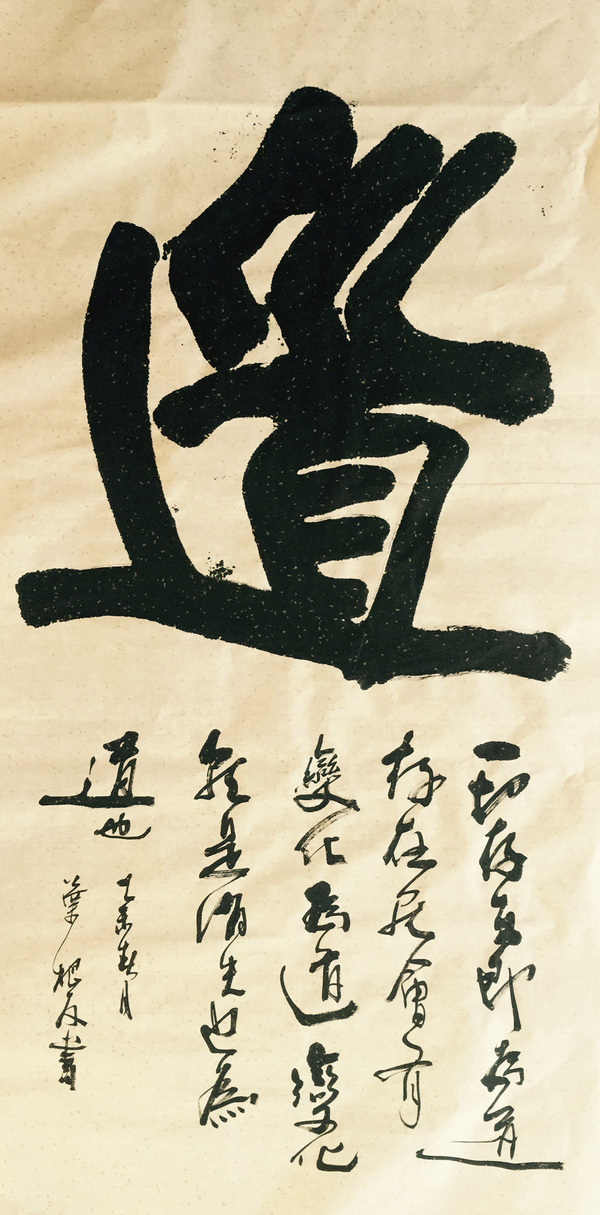 道
一切存在即為道
存在會有
變化為道變化
是消失也為
道也
未春月
葉根友書